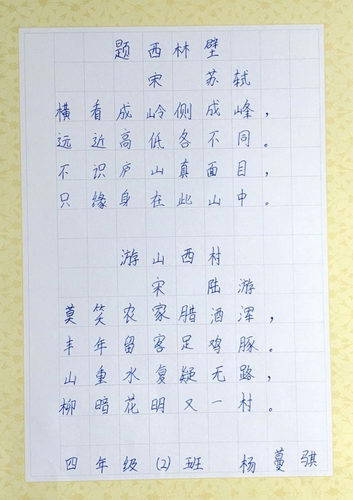 题西林壁
宋 苏轼
横看成岭侧成峰，
远近高低各不同。
不识庐山真面目，
只缘身在此山中。
游山西村
宋 陆游
莫笑农家腊酒浑，
丰年留客足鸡豚。
山重水复疑无路，
柳暗花明又一村。
四年级(2)班 杨蔓骐